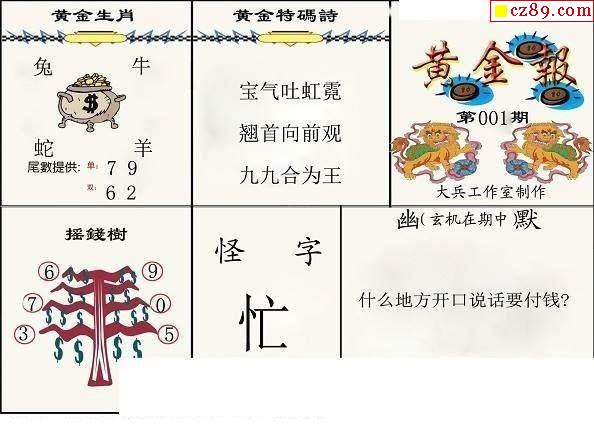 cz89.com
黄金生肖
兔 牛
$
蛇 羊
尾數提供: 单: 7 9
双: 6 2
黄金特碼詩
宝气吐虹霓
翘首向前观
九九合为王
黄金報
第001期
大兵工作室制作
摇錢樹
6 9
7 0
3 5
$ $ $ $ $ $ $ $ $ $ $ $
怪字
忙
幽(玄机在期中)默
什么地方开口说话要付钱?